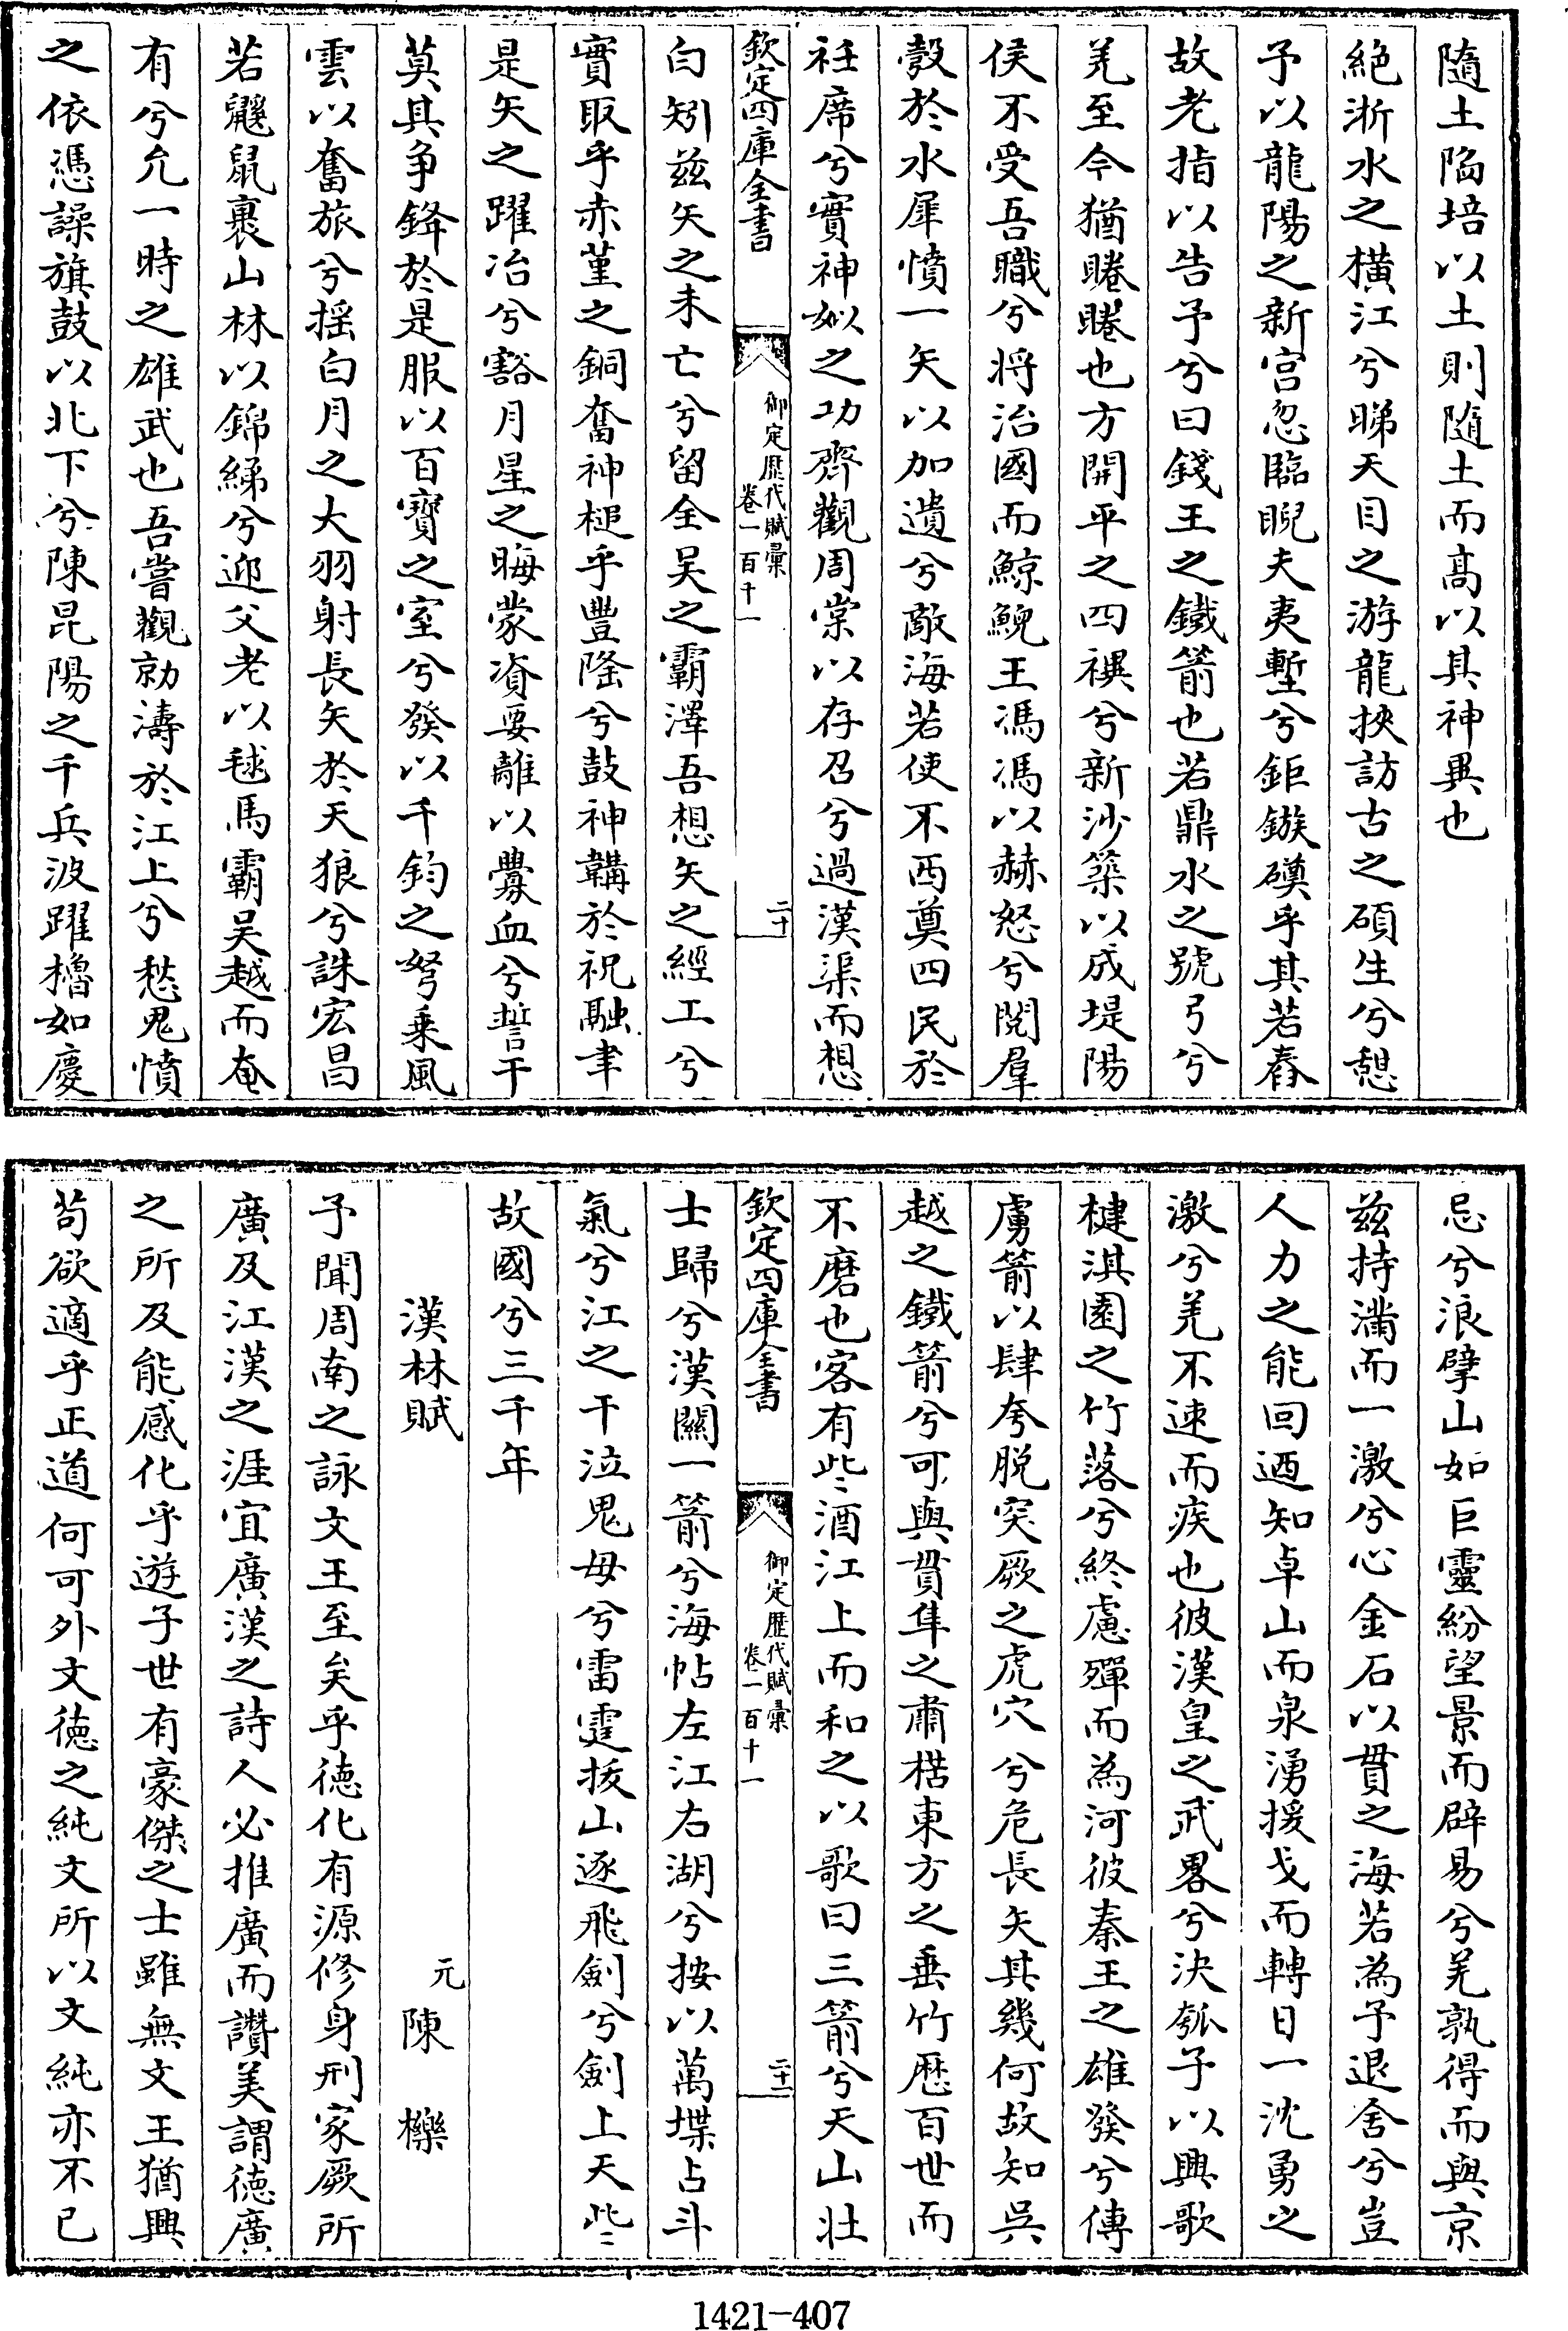 隨土陷培以土則隨土而高以其神異也
絶淅水之横江兮睇天目之游龍挾訪古之碩生兮憩
予以龍陽之新宫忽臨睨夫夷塹兮鉅鏃礮乎其若舂
故老指以告予兮曰錢王之鐵箭也若鼎水之號弓兮
羌至今猶睠睠也方開平之四禩兮新沙築以成堤陽
侯不受吾職兮将治國而鯨鯢王馮馮以赫怒兮閲羣
彀於水犀憤一矢以加遺兮敵海若使不西奠四民於
衽席兮實神姒之功齊觀周棠以存召兮過漢渠而想
欽定四庫全書
御定歴代賦彙
卷一百十一
二十
白矧茲矢之未亡兮留全吴之霸澤吾想矢之經工兮
實取乎赤堇之銅奮神槌乎豐隆兮鼓神韝於祝融聿
是矢之躍冶兮豁月星之晦蒙資要離以釁血兮誓干
莫其争鋒於是服以百寳之室兮發以千鈞之弩乗風
雲以奮旅兮揺白月之大羽射長矢於天狼兮誅宏昌
若鼷鼠裹山林以錦綈兮迎父老以毬馬霸吴越而奄
有兮允一時之雄武也吾嘗觀勍濤於江上兮愁鬼憤
之依憑譟旗鼓以北下兮陳昆陽之千兵波躍櫓如慶
忌兮浪擘山如巨靈紛望景而辟易兮羌孰得而與京
茲持滿而一激兮心金石以貫之海若為予退舍兮豈
人力之能回迺知卓山而泉湧援戈而轉日一沈勇之
激兮羌不速而疾也彼漢皇之武畧兮決瓠子以興歌
楗淇園之竹落兮終慮殫而為河彼秦王之雄發兮傳
虜箭以肆夸脱突厥之虎穴兮危長矢其幾何故知吳
越之鐵箭兮可與貫隼之肅楛東方之垂竹歴百世而
不磨也客有些酒江上而和之以歌曰三箭兮天山壯
欽定四庫全書
御定歴代賦彙
卷一百十一
二十一
士歸兮漢關一箭兮海帖左江右湖兮按以萬堞占斗
氣兮江之干泣鬼母兮雷霆拔山逐飛劍兮劍上天些
故國兮三千年
漢林賦
元陳櫟
予聞周南之詠文王至矣乎徳化有源修身刑家厥所
廣及江漢之涯宜廣漢之詩人必推廣而讚美謂徳廣
之所及能感化乎遊子世有豪傑之士雖無文王猶興
茍欲適乎正道何可外文徳之純文所以文純亦不已
1421-407